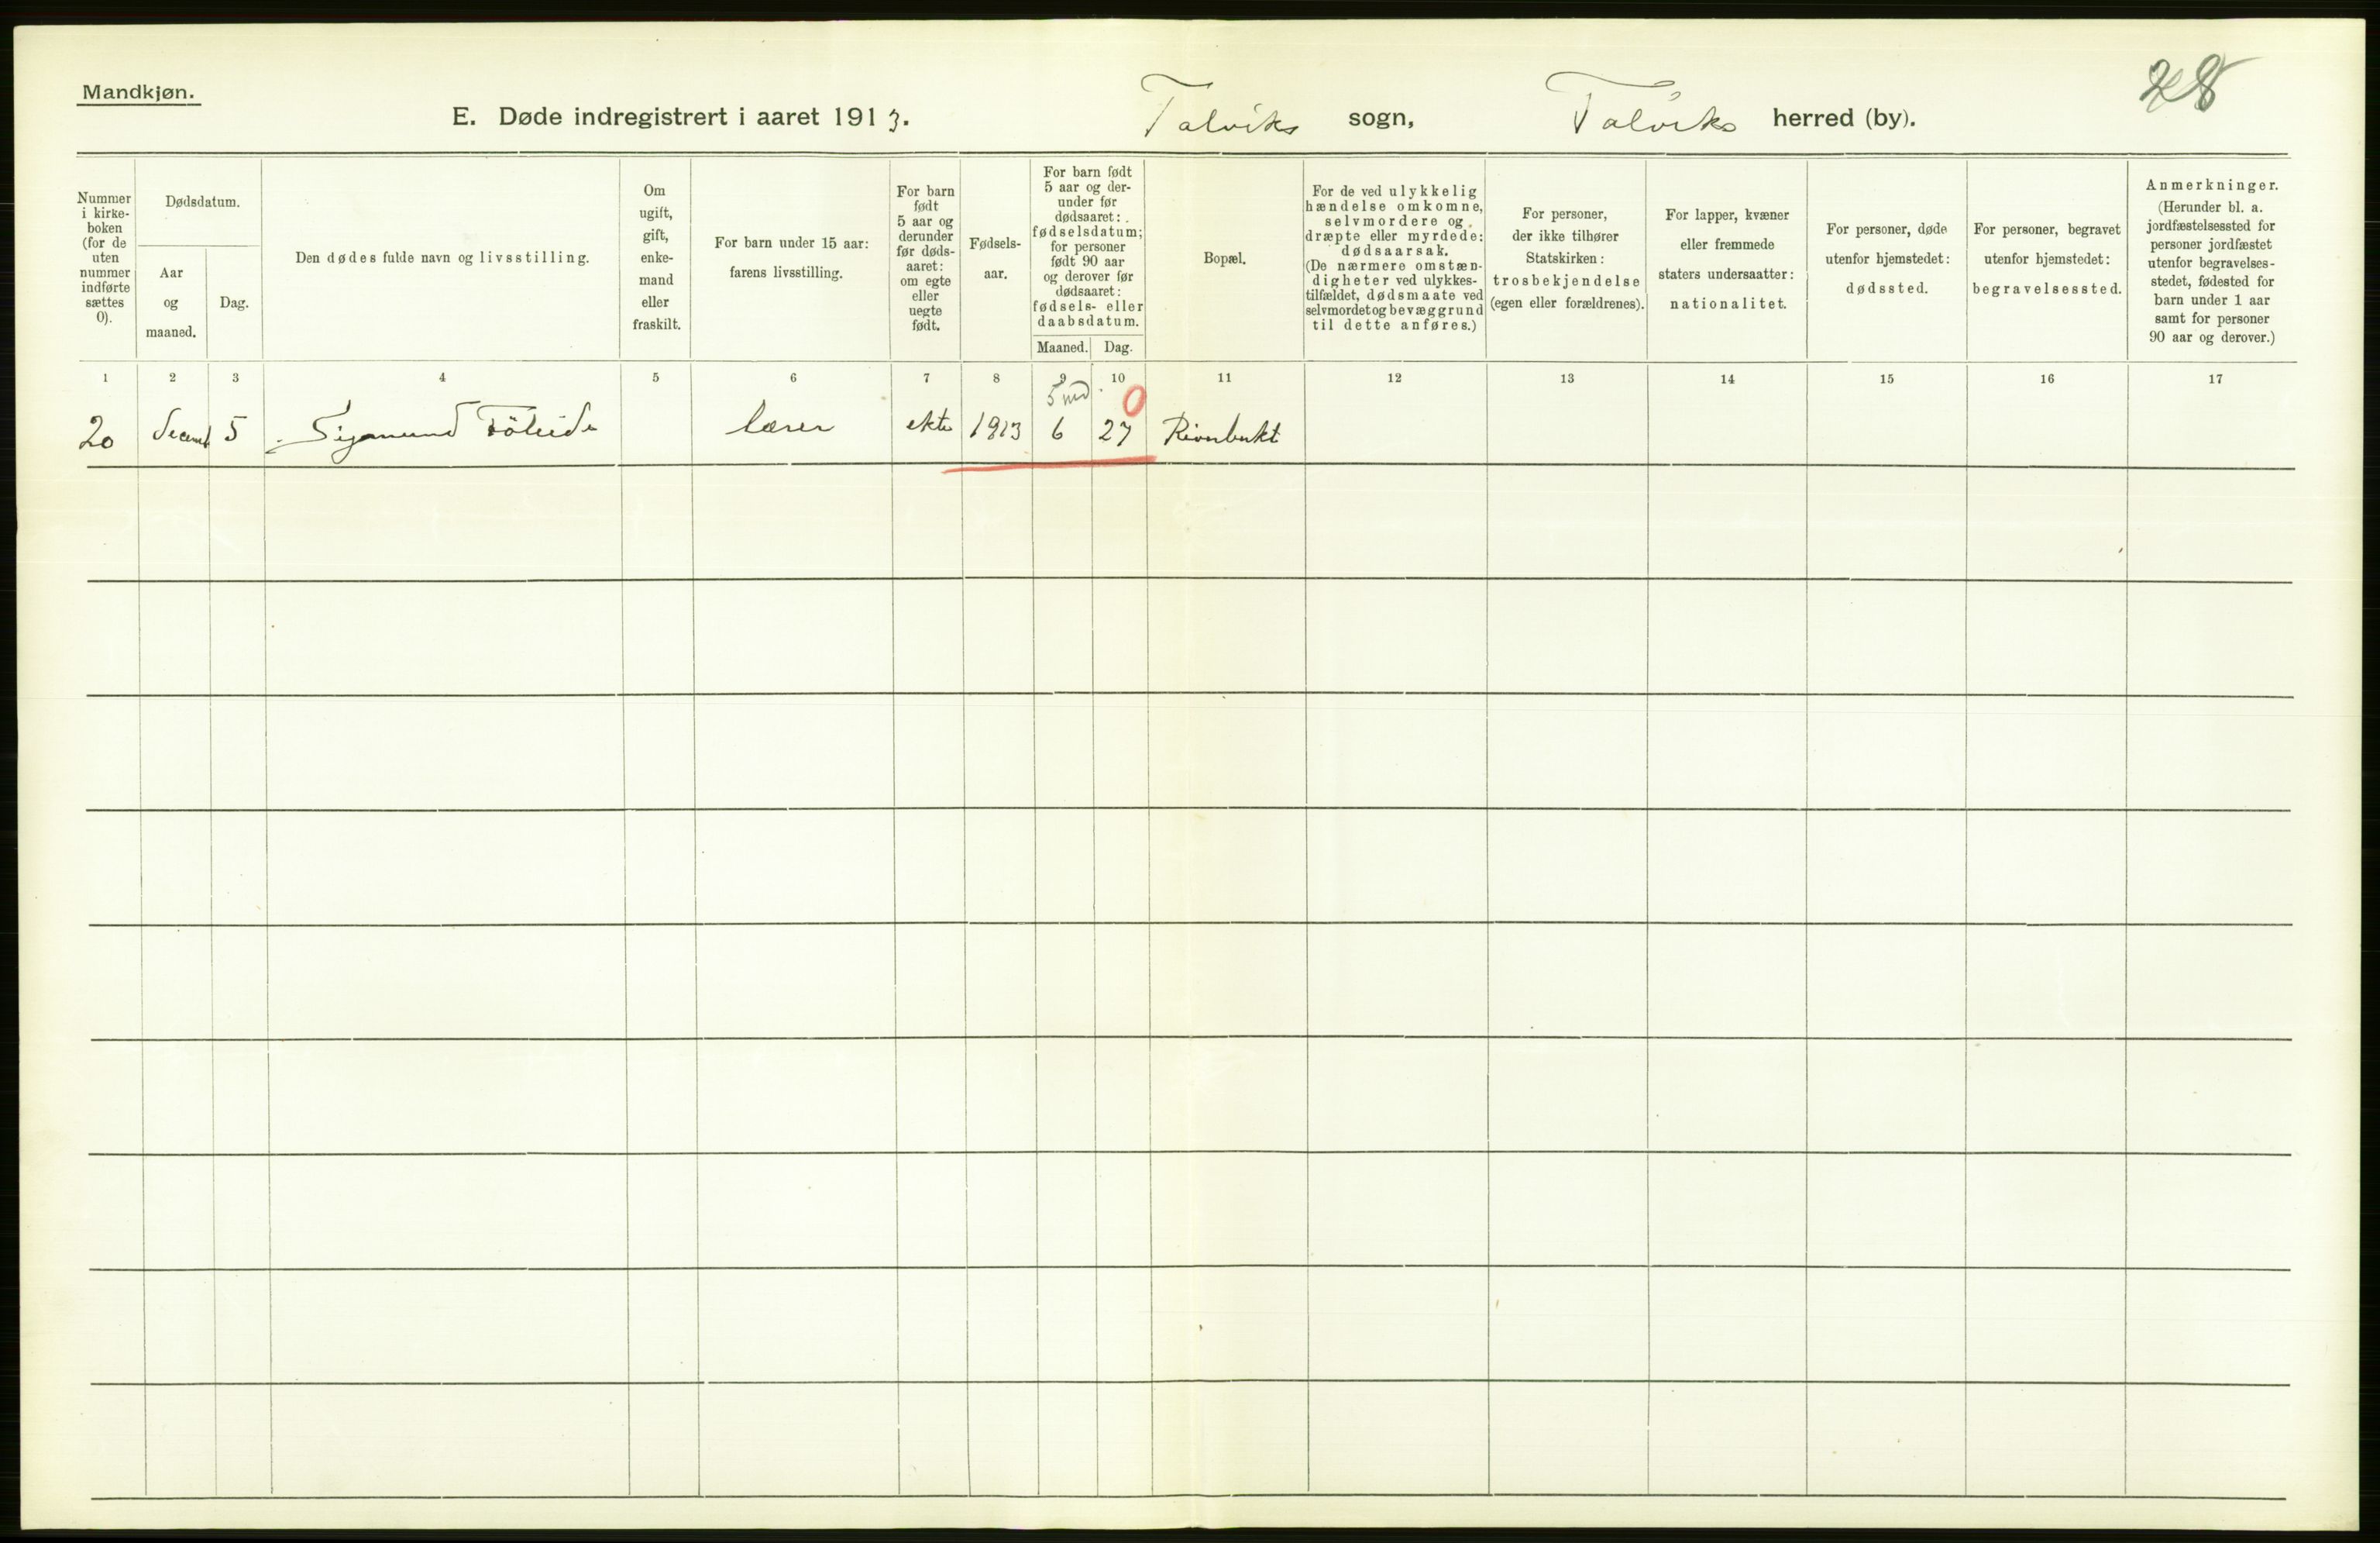 Mandkjøn.
28
E. Døde indregistrert i aaret 1913. Talviks sogn, Talviks herred (by).
Nummer
i kirke-
boken
(for de
uten
nummer
indførte
sættes
0).
Dødsdatum.
Aar
og
maaned.
Dag.
Den dødes fulde navn og livsstilling.
Om
ugift,
gift,
enke-
mand
eller
fraskilt.
For barn under 15 aar:
farens livsstilling.
For barn
født
5 aar og
derunder
før døds-
aaret:
om egte
eller
uegte
født.
Fødsels-
aar.
For barn født
5 aar og der-
under før
dødsaaret:
fødselsdatum;
for personer
født 90 aar
og derover før
dødsaaret:
fødsels- eller
daabsdatum.
Maaned. Dag.
Bopæl.
For de ved ulykkelig
hændelse omkomne,
selvmordere og
dræpte eller myrdede:
dødsaarsak.
(De nærmere omstæn-
digheter ved ulykkes-
tilfældet, dødsmaate ved
selvmordet og bevæggrund
til dette anføres.)
For personer,
der ikke tilhører
Statskirken:
trosbekjendelse
(egen eller forældrenes).
For lapper, kvæner
eller fremmede
staters undersaatter:
nationalitet.
For personer, døde
utenfor hjemstedet:
dødssted.
For personer, begravet
utenfor hjemstedet:
begravelsessted.
Anmerkninger.
(Herunder bl. a.
jordfæstelsessted for
personer jordfæstet
utenfor begravelses-
stedet, fødested for
barn under 1 aar
samt for personer
90 aar og derover.)
1 2 3 4 5 6 7 8 9 10 11 12 13 14 15 16 17
5 md 0
20 5 Sigmund lærer ekte 1913 6 27